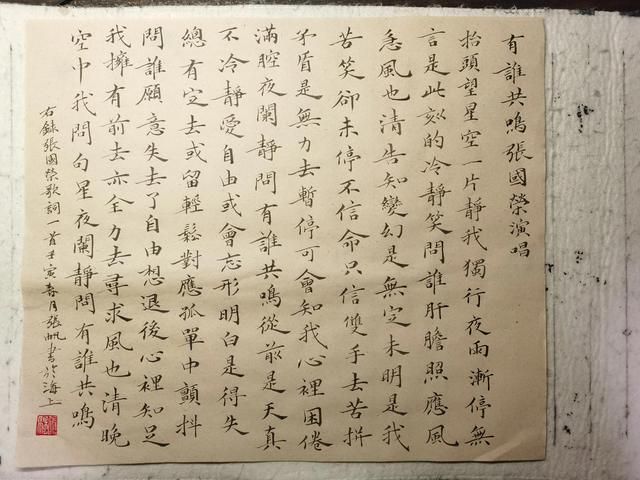 有誰共鳴張國榮演唱
抬頭望星空一片靜我獨行夜雨漸停無
言是此刻的冷靜笑問誰肝膽照應風
急風也清告知變幻是無定未明是我
苦笑卻未停不信命只信雙手去苦拼
矛盾是無力去暫停可會知我心裡困倦
滿腔夜闌靜問有誰共鳴從前是天真
不冷靜愛自由或會忘形明白是得失
總有定去或留輕鬆對應孤單中顫抖
問誰願意失去了自由想退後心裡知足
我擁有前去亦全力去尋求風也清晚
空中我問句星夜闌靜問有誰共鳴
右錄張國榮歌詞一首壬寅春月張帆書於海上